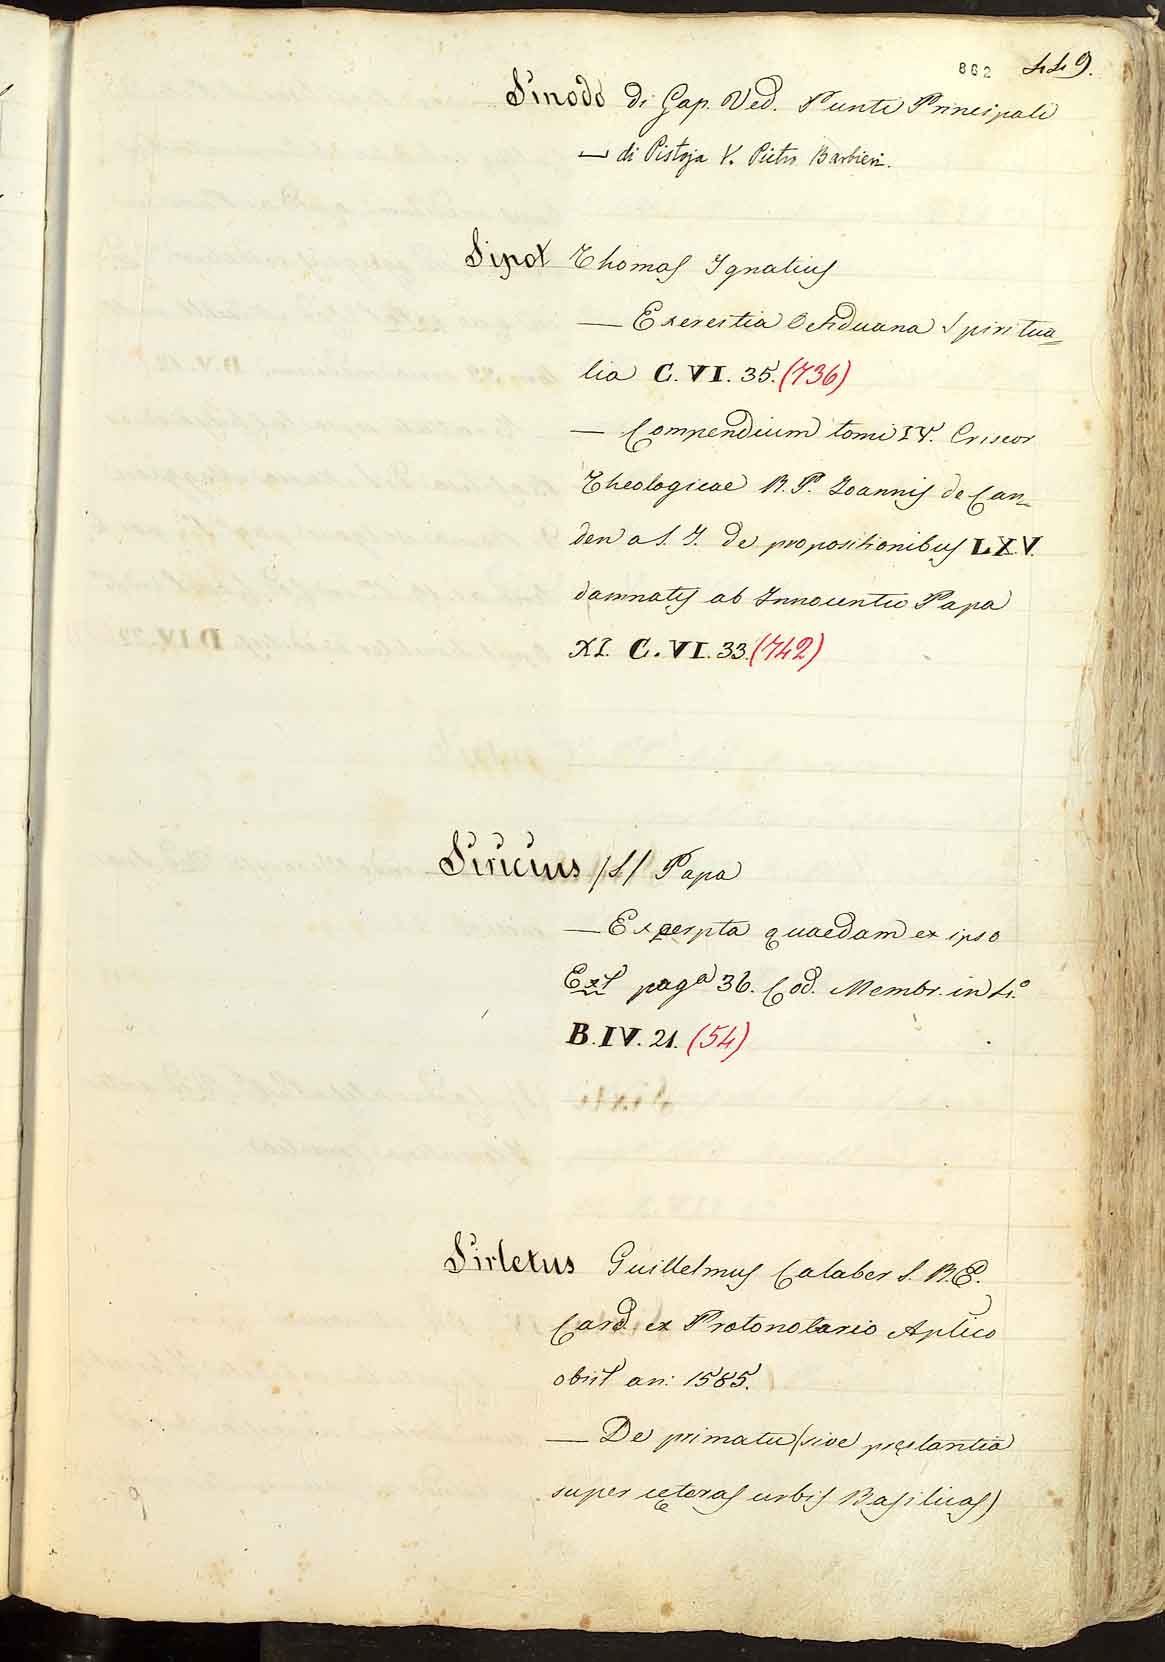 862 449.
Sinodo di Gap. Ved. Punti Principali
— di Pistoja V. Pietro Barbieri.
Sipot Thomas Ignatius
— Exercitia Octiduana Spiritua=
lia C. VI. 35. (736)
— Compendium tomi IV. Criseor
Theologicae R. P. Joannis de Car=
dena S. J. de propositionibus LXV.
damnatis ab Innocentio Papa
XI. C. VI. 33. (742)
Siricius /S/ Papa
— Excerpta quaedam ex ipso
Ext pag.ª 36. Cod. Membr. in 4.º
B. IV. 21. (54)
Sirletus Guillelmus Calaber S. R. E.
Card. ex Protonotario Aplico
obiit an: 1585.
— De primatu (sive pręstantia
super cęteras urbis Basilicas)